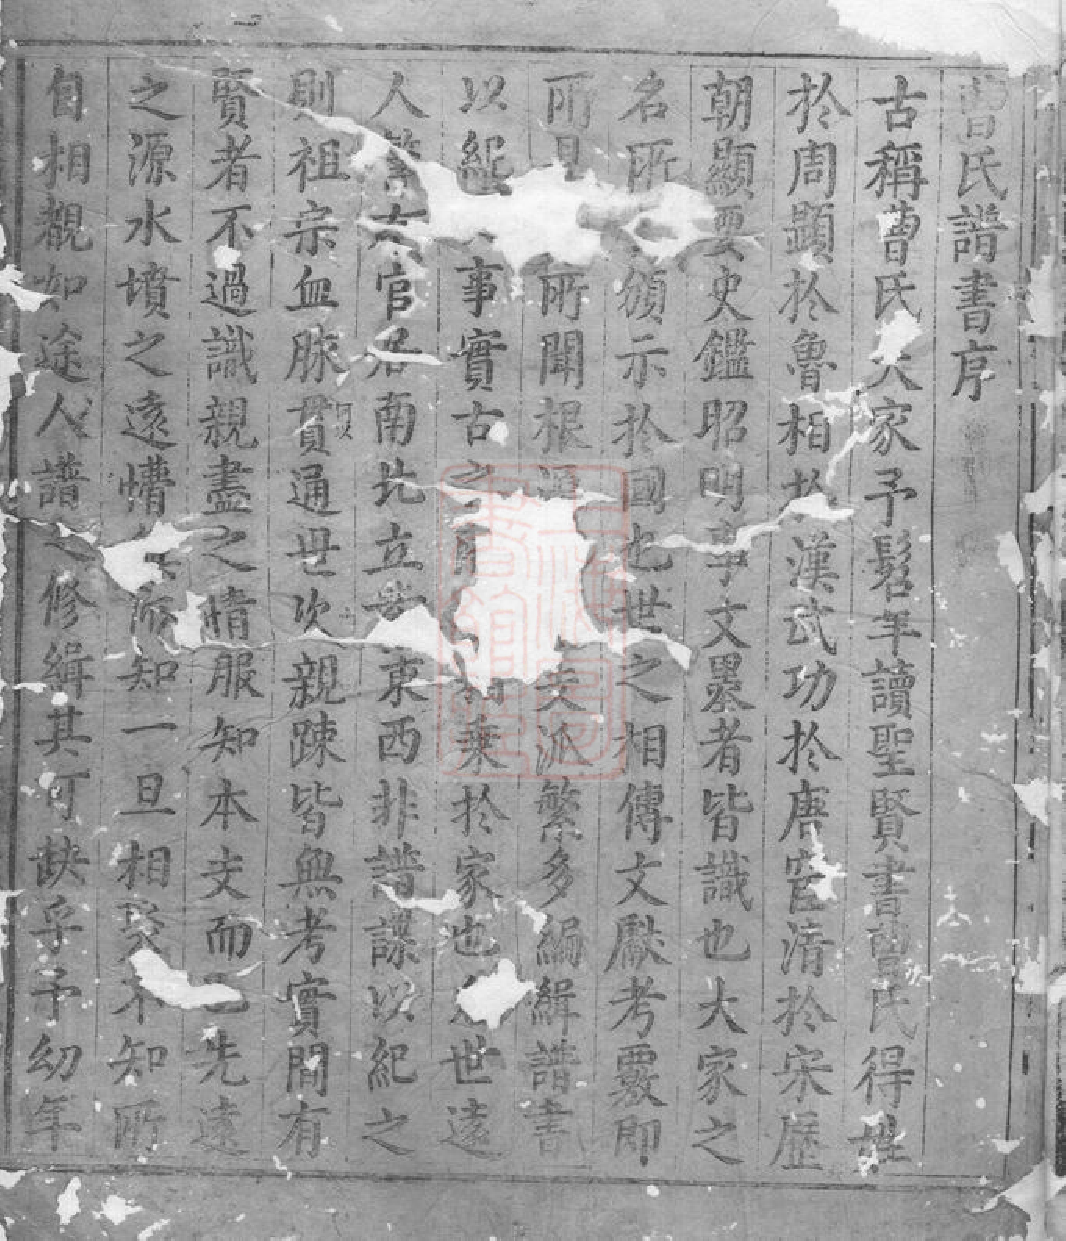 曹氏譜書序
古稱曹氏大家予髫年讀聖賢書曹氏得姓
扵周顕扵魯相扵漢武功扵唐官清扵宋歷
朝顯要史鑑昭明事文墨者皆識也大家之
名所頒示扵國也世之相傳文獻考覈即
所見所聞根源支派繁多編緝譜書
以紀事實古之乗扵家也世遠
人官居南北立東西非譜諜以紀之
則祖宗血脉貫通世次親踈皆無考實間有
賢者不過識親盡之情服知本支而已先遠
之源水墳之遠懵而知一旦相㸔不知所
自相覩如途人譜之修緝其可缺乎予㓜年